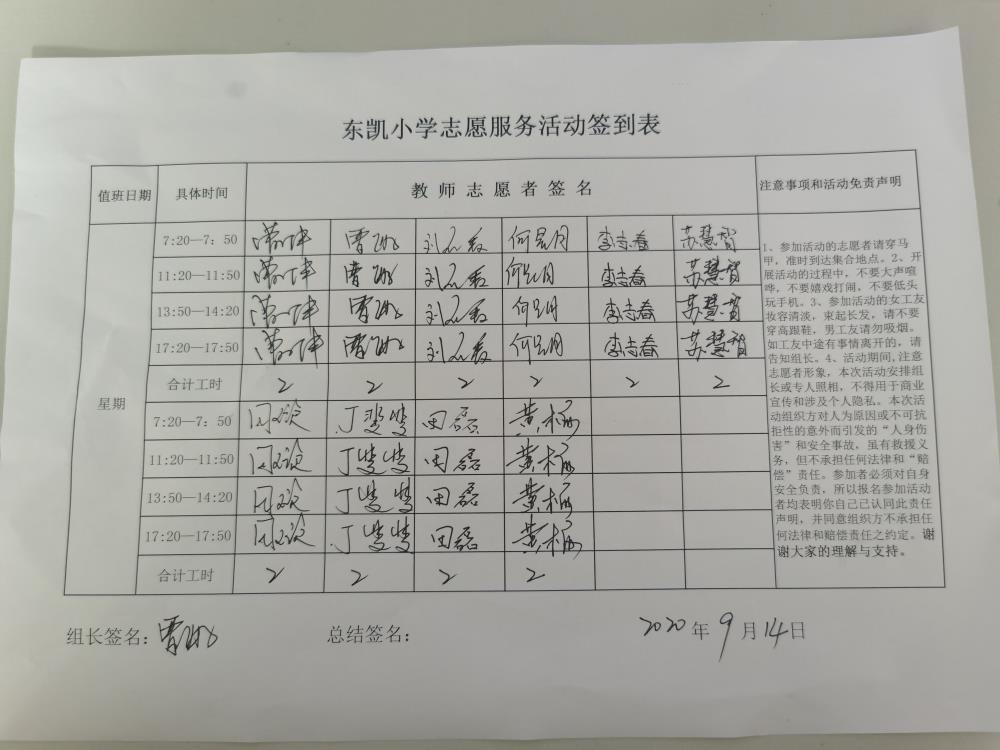 东凯小学志愿服务活动签到表
值班日期 具体时间 教师志愿者签名 注意事项和活动免责声明
星期
7:20—7：50 李志春 苏慧智
11:20—11:50 李志春 苏慧智
13:50—14:20 李志春 苏慧智
17:20—17:50 李志春 苏慧智
合计工时 2 2 2 2 2 2
7:20—7：50 田磊 黄杨
11:20—11:50 田磊 黄杨
13:50—14:20 田磊 黄杨
17:20—17:50 田磊 黄杨
合计工时 2 2 2 2
1、参加活动的志愿者请穿马
甲，准时到达集合地点。2、开
展活动的过程中，不要大声喧
哗，不要嬉戏打闹，不要低头
玩手机。3、参加活动的女工友
妆容清淡，束起长发，请不要
穿高跟鞋，男工友请勿吸烟。
如工友中途有事情离开的，请
告知组长。4、活动期间,注意
志愿者形象，本次活动安排组
长或专人照相，不得用于商业
宣传和涉及个人隐私。本次活
动组织方对人为原因或不可抗
拒性的意外而引发的“人身伤
害”和安全事故，虽有救援义
务，但不承担任何法律和“赔
偿”责任。参加者必须对自身
安全负责，所以报名参加活动
者均表明你自己已认同此责任
声明，并同意组织方不承担任
何法律和赔偿责任之约定。谢
谢大家的理解与支持。
组长签名： 总结签名： 2020年9月14日